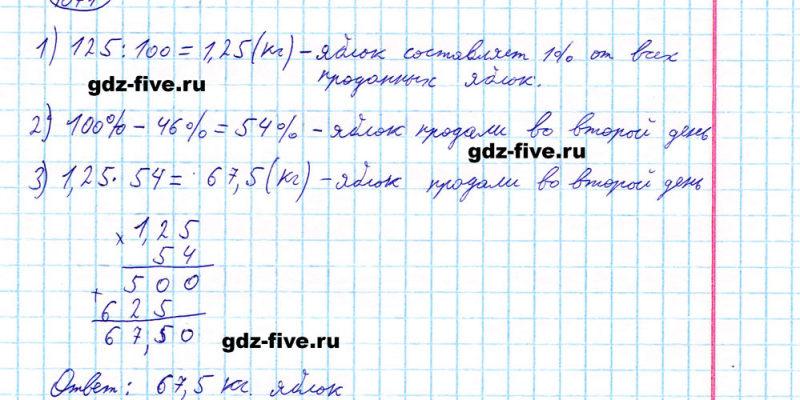 1) 125 : 100 = 1,25 (кг) – яблок составляет 1% от всех
проданных яблок.
gdz-five.ru
2) 100% – 46% = 54% – яблок продали во второй день
gdz-five.ru
3) 1,25 · 54 = 67,5 (кг) – яблок продали во второй день
× 1,25
54
+ 500
625
67,50
gdz-five.ru
Ответ: 67,5 кг. яблок